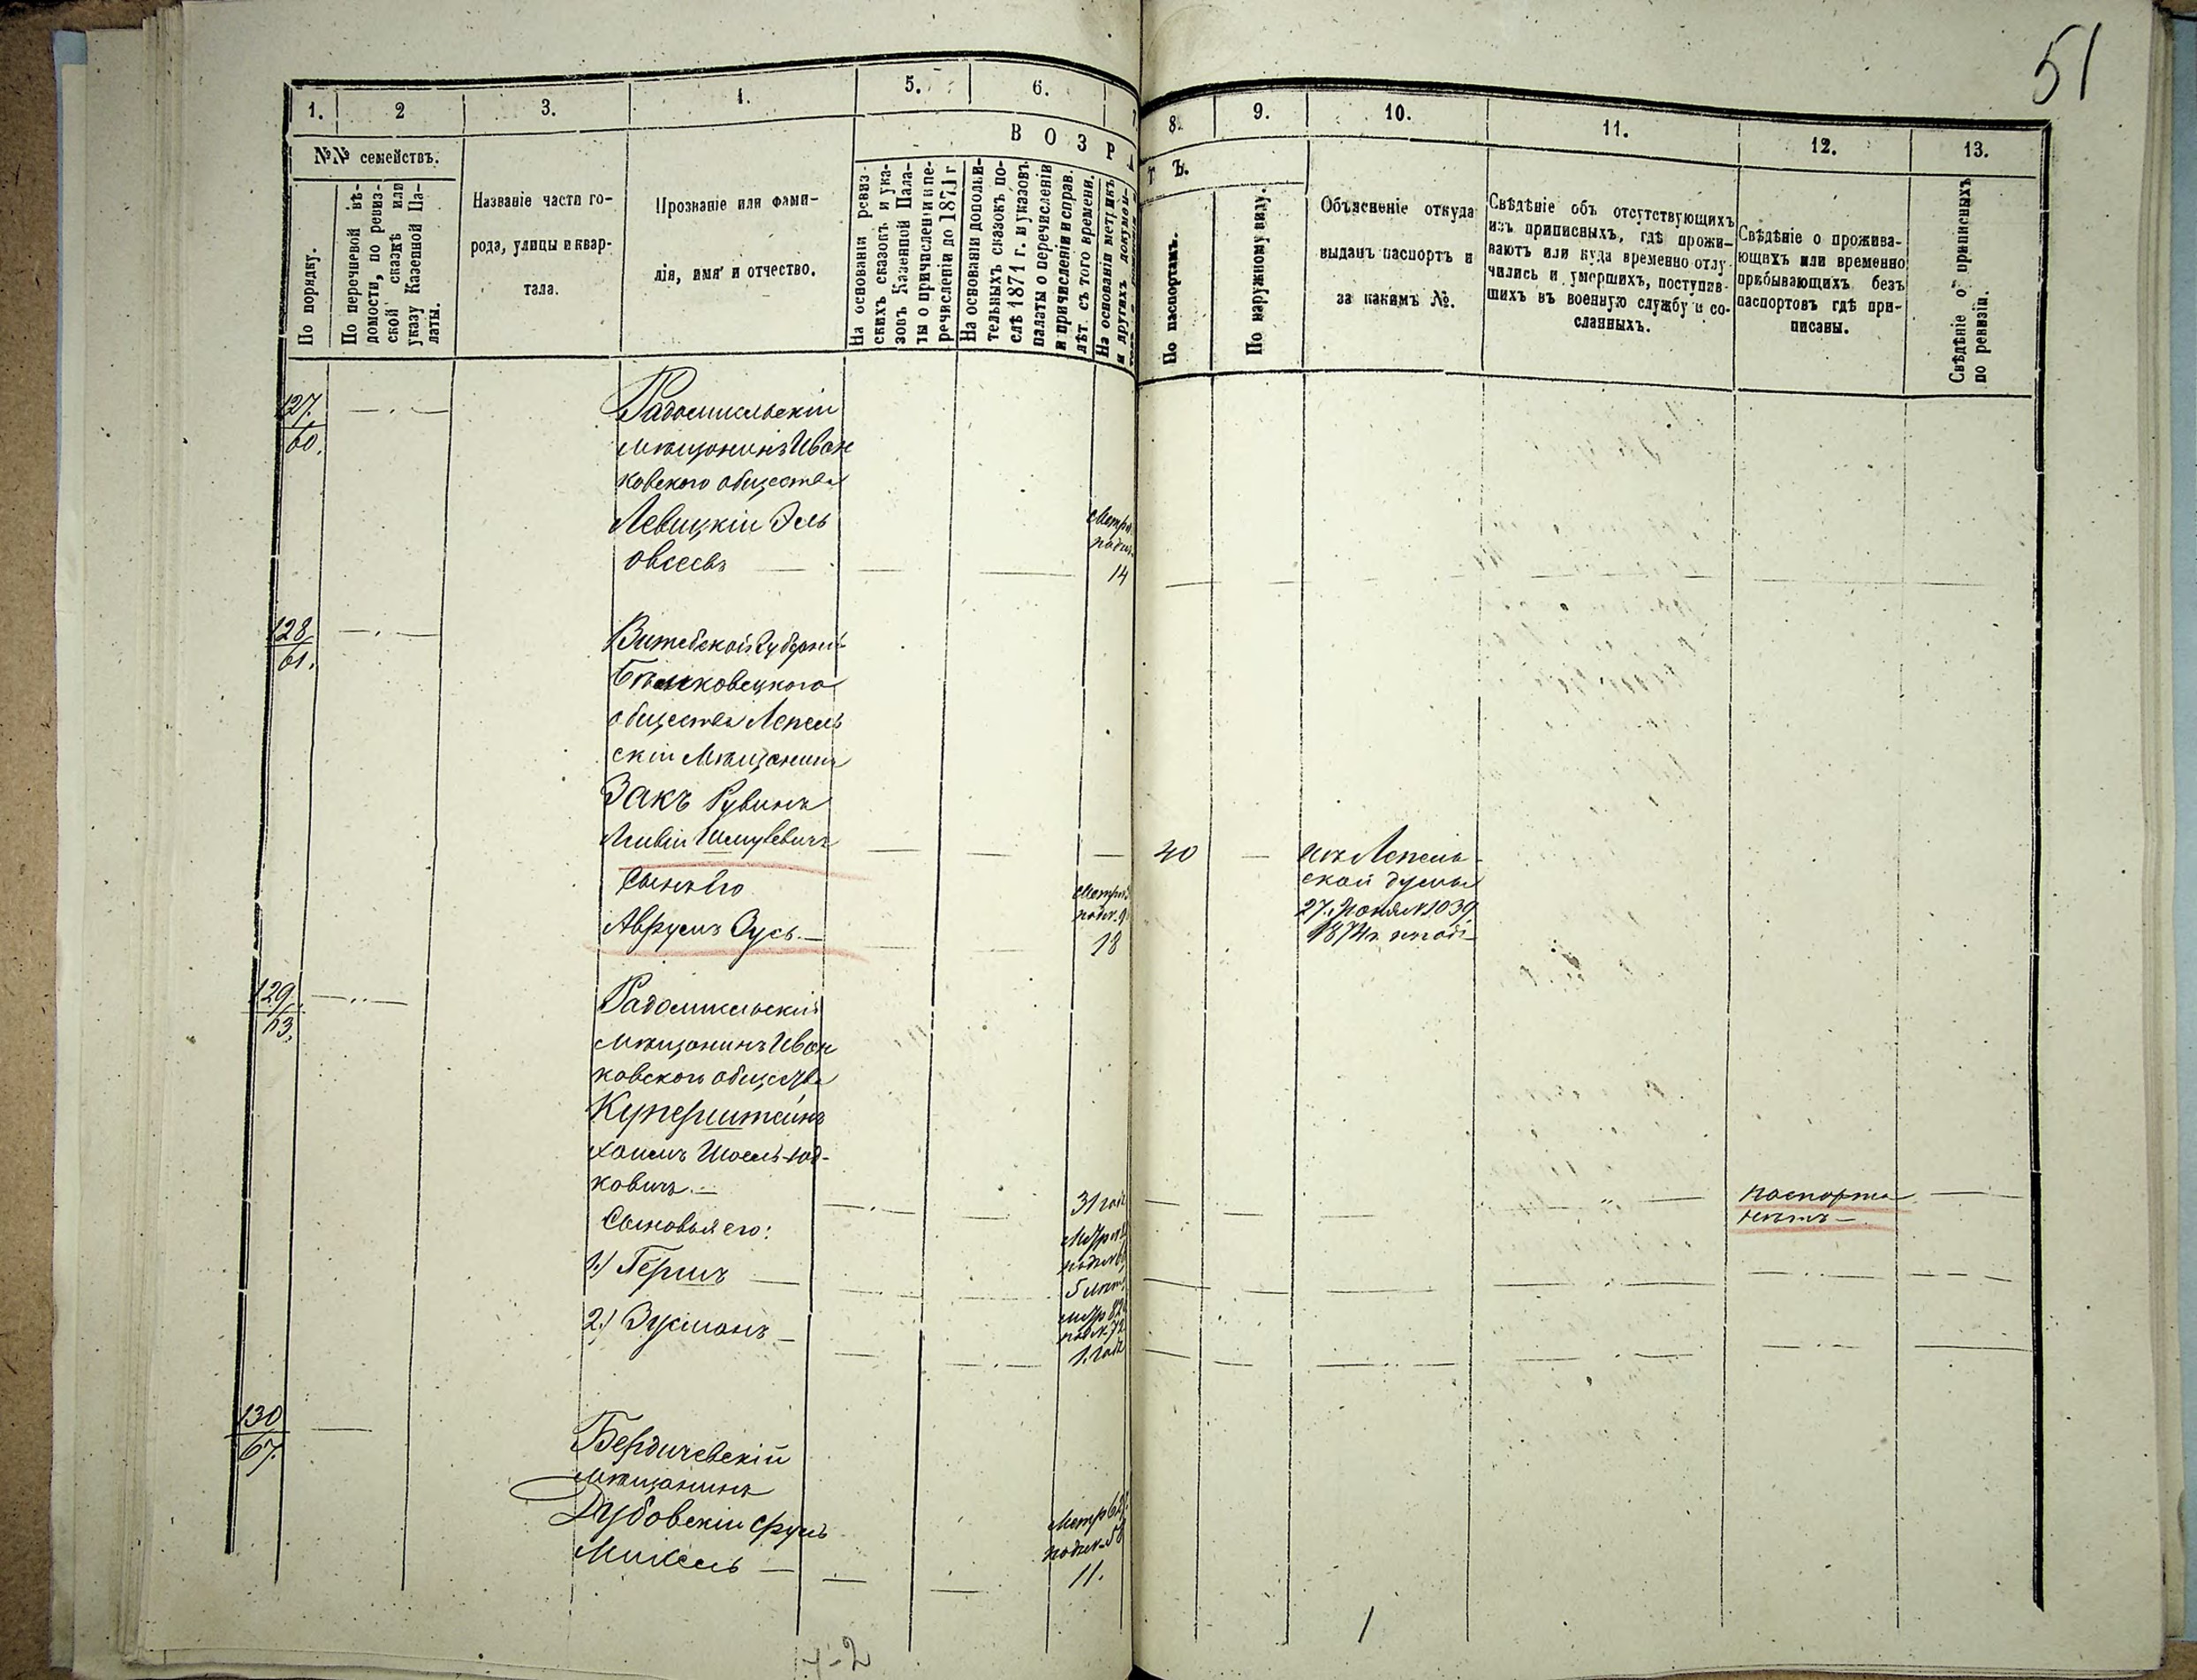 51
1. 2 3. 4. 5. 6. 7
8. 9. 10. 11. 12. 13.
В О З Р А
Т Ъ.
№№ семействъ.
По порядку.
По перечневой вѣ-
домости, по ревиз-
ской сказкѣ или
указу Казенной Па-
латы.
Названіе части го-
рода, улицы и квар-
тала.
Прозваніе или фами-
лія, имя и отчество.
На основаніи ревиз-
скихъ сказокъ и ука-
зовъ Казенной Пала-
ты о причисленіи и пе-
речисленіи до 1871 г
На основаніи дополни-
тельныхъ сказокъ по-
слѣ 1871 г. и указовъ
палаты о перечисленіи
и причисленіи и справ.
лѣт. съ того времени.
На основаніи метрикъ
и другихъ докумен-
По паспортамъ.
По наружному виду.
Объясненіе откуда
выданъ паспортъ и
за какимъ №.
Свѣдѣніе объ отсутствующихъ
изъ приписныхъ, гдѣ прожи-
ваютъ или куда временно отлу-
чились и умершихъ, поступив-
шихъ въ военную службу и со-
сланныхъ.
Свѣдѣніе о прожива-
ющихъ или временно
пребывающихъ безъ
паспортовъ гдѣ при-
писаны.
Свѣдѣніе о приписныхъ
по ревизіи.
127.
60.
Радомисльскій
мѣщанинъ Иван
ковского общества
Левицкій Эль
Овсеевъ
Метри
подъ
14
128
61.
Витебской Губерніи
Бѣшковецкого
общества Лепель
скій Мѣщанинъ
Закъ Рувинъ
Лейвій Шмулевичъ
40
изъ Лепель-
ской думы
27 Іюня №1039
1874 г. на годъ
Сынъ Его
Аврумъ Зусь
Метри
подъ №9
18
129
63.
Радомисльскій
мѣщанинъ Иван
ковского общества
Куперштейнъ
Хаимъ Шоель-Юд-
ковичъ.
31 годъ
паспорта
нѣтъ
Сыновья его:
1.) Гершъ
5 лѣтъ
2.) Зусманъ
1. годъ
130
67.
Бердичевскій
мѣщанинъ
Дубовскій Сруль
Микель
Метр
подъ №
11.